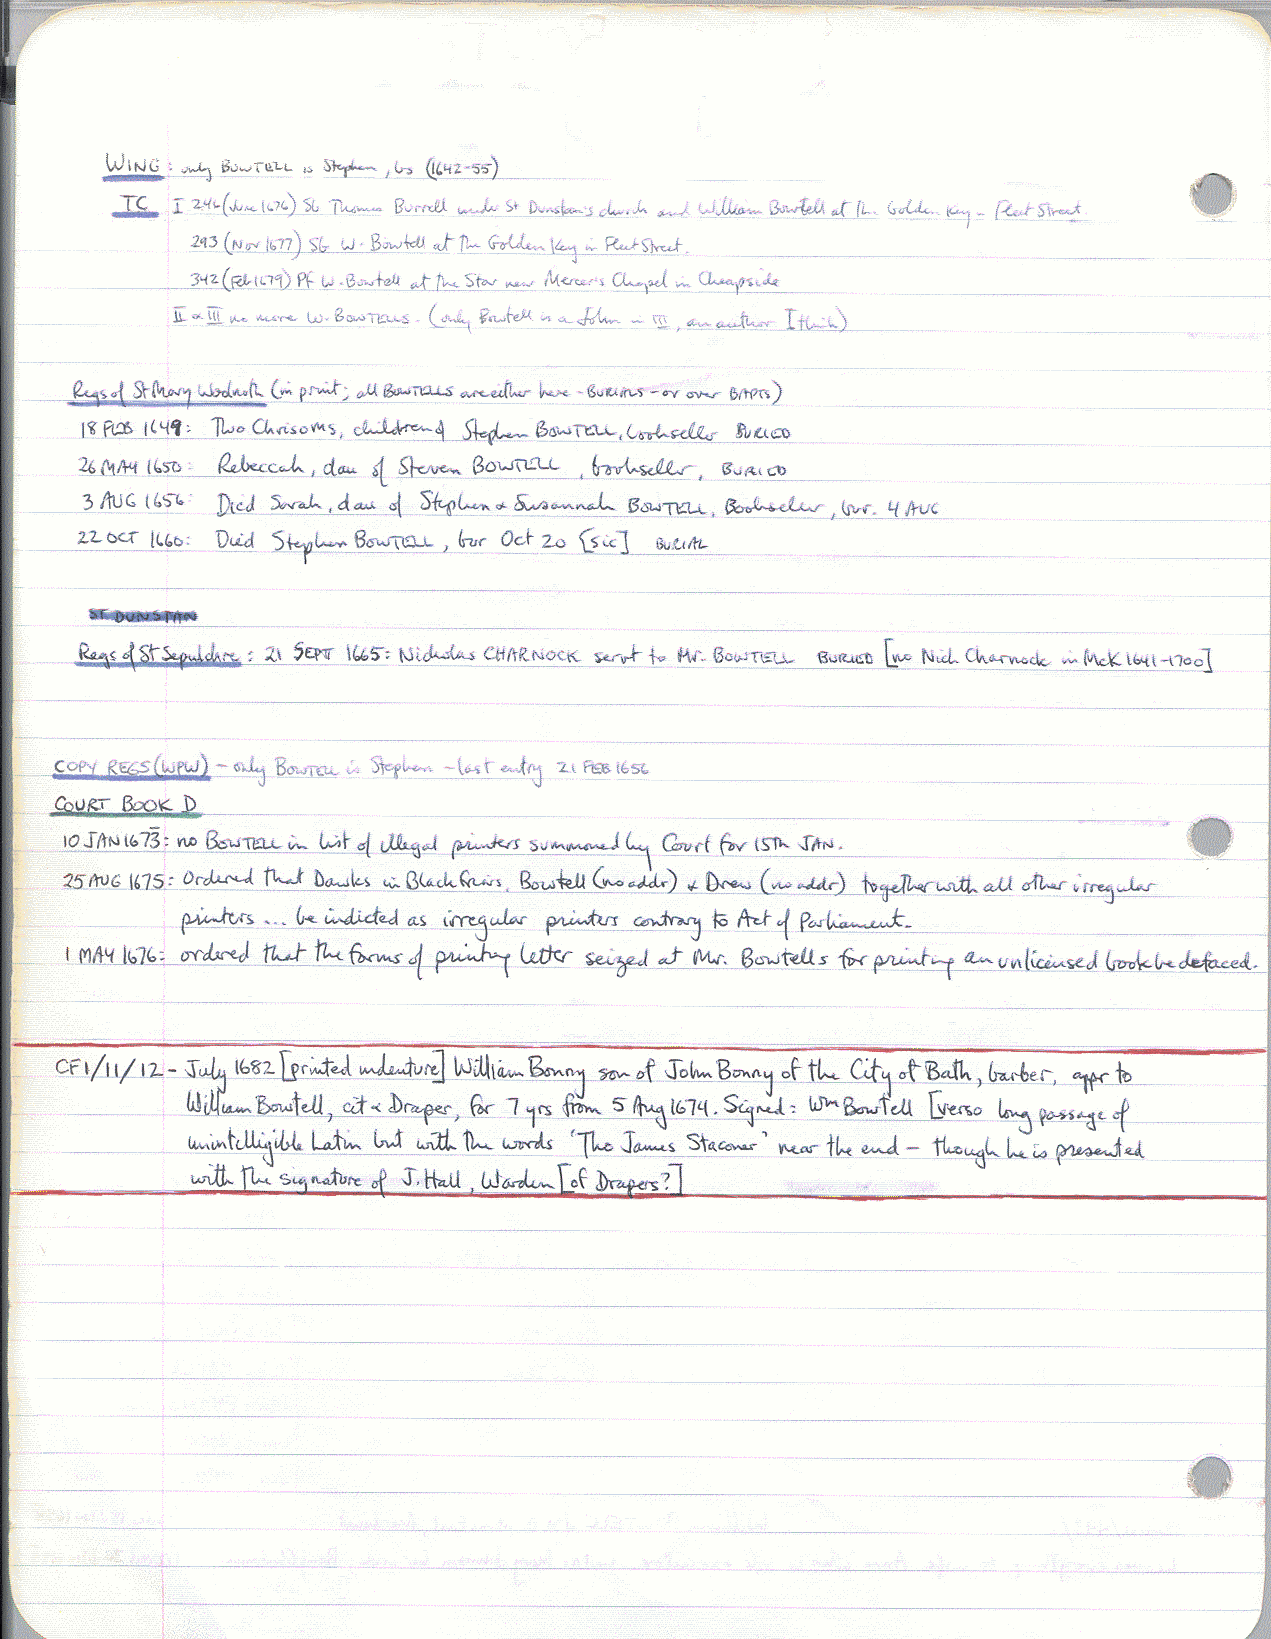 WING: only BOWTELL is Stephen, bs (1642-55)
TC I 246 (June 1676) Sb Thomas Burrell under St Dunstan's church and William Bowtell at the Golden Key in Fleet Street.
293 (Nov 1677) Sb W. Bowtell at the Golden Key in Fleet Street.
342 (Feb 1679) Pf W. Bowtell at the Star near Mercer's Chapel in Cheapside
II & III no more W. BOWTELLS. (only Bowtell is a John in III, an author I think)
Regs of St Mary Woolnoth (in print; all BOWTELLS are either here - BURIALS - or over BAPTS)
18 FEB 1649: Two Chrisoms, children of Stephen BOWTELL, bookseller BURIED
26 MAY 1650: Rebeccah, dau of Steven BOWTELL, bookseller, BURIED
3 AUG 1656: Died Sarah, dau of Stephen & Susannah BOWTELL, Bookseller, bur. 4 AUG
22 OCT 1660: Died Stephen BOWTELL, bur Oct 20 [sic] BURIAL
ST DUNSTAN
Regs of St Sepulchre: 21 SEPT 1665: Nicholas CHARNOCK servt to Mr. BOWTELL BURIED [no Nich. Charnock in McK 1641-1700]
COPY REGS (WPW) - only BOWTELL is Stephen - last entry 21 FEB 1656
COURT BOOK D
10 JAN 1673: no BOWTELL in list of illegal printers summoned by Court for 15th JAN.
25 AUG 1675: Ordered that Dawks in Blackfriars, Bowtell (no addr) & Drew (no addr) together with all other irregular
printers ... be indicted as irregular printers contrary to Act of Parliament.
1 MAY 1676: ordered that the forms of printing letter seized at Mr. Bowtells for printing an unlicensed book be defaced.
CF1/11/12 - July 1682 [printed indenture] William Bonny son of John Bonny of the City of Bath, barber, appr to
William Bowtell, cit & Draper, for 7 yrs from 5 Aug 1674. Signed: Wm Bowtell [verso long passage of
unintelligible Latin but with the words 'Tho James Staconer' near the end - though he is presented
with the signature of J. Hall, Warden [of Drapers?]